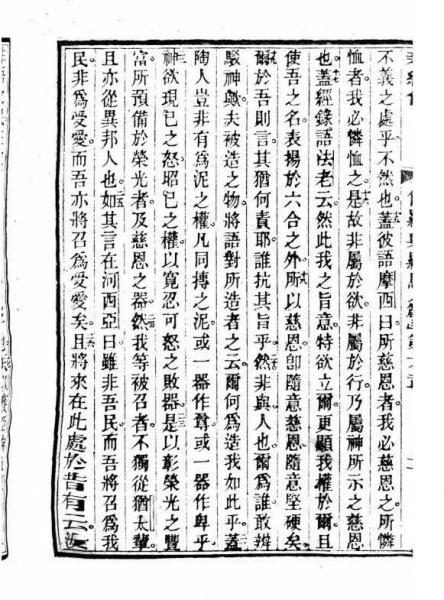 不義之處乎不然也蓋彼語摩西曰所慈恩者我必慈恩之所憐
恤者我必憐恤之是故非屬於欲非屬於行乃屬神所示之慈恩
也蓋經錄語法老云然此我之旨意特欲立爾更顯我權於爾且
使吾之名表揚於六合之外所以慈恩卽隨意慈恩隨意堅硬矣
爾於吾則言其猶何責耶誰抗其旨乎然非與人也爾為誰敢辨
駁神歟夫被造之物將語對所造者之云爾何為造我如此乎蓋
陶人豈非有為泥之權凡同摶之泥或一器作尊或一器作卑乎
神欲現已之怒昭已之權以寬忍可怒之敗器是以彰榮光之豐
富所預備於榮光者及慈恩之器然我等被召者不獨從猶太輩
且亦從異邦人也如其言在河西亞曰雖非吾民而吾將召為我
民非為愛愛而吾亦將召為愛愛矣且將來在此處於昔有云汝